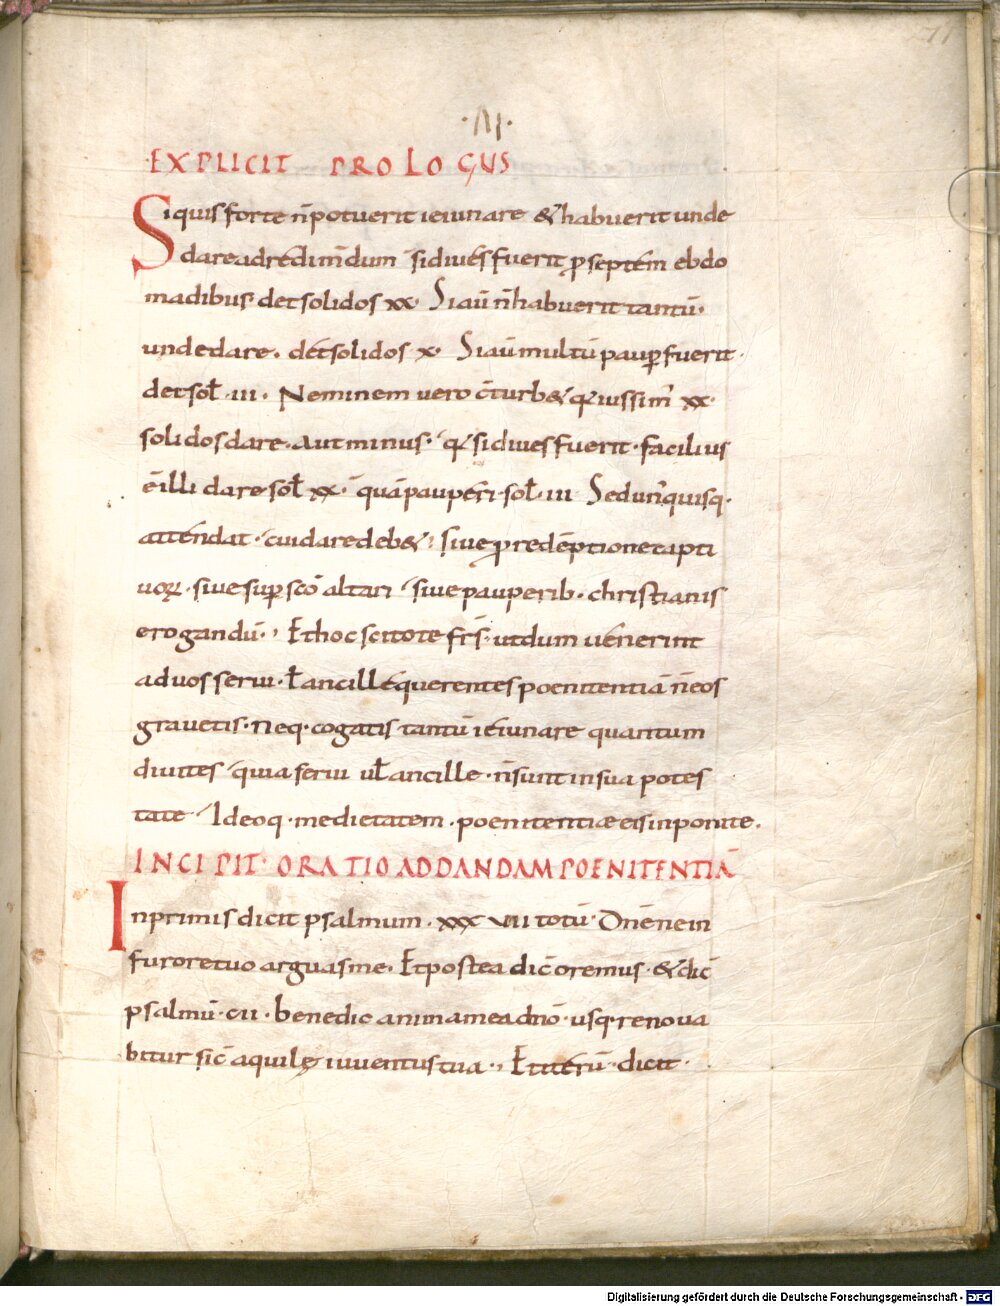 ·VI·
EXPLICIT PROLOGUS
Si quis forte n̄ potuerit ieiunare & habuerit unde
dare ad redim̄dum si diues fuerit ꝑ septem ebdo
madibus det solidos xx. Si aū n̄ habuerit tantū·
unde dare. det solidos x· Si aū multū pauꝑ fuerit·
det sol̄ ·iii· Neminem uero c̄turb& qꝛ iussim̄ xx·
solidos dare. aut minus· qꝛ si diues fuerit· facilius
ē illi dare sol̄ xx· quā pauperi sol̄·iii Sed un̄quisq·
attendat· cui dare deb& siue ꝓ redēptione capti
uoꝝ· siue suꝑ scō altari siue pauperib· christianis
erogandū· Et hoc scitote frs̄· ut dum uenerint
ad uos serui· l̄ ancille querentes poenitentiā n̄ eos
grauetis· neq· cogatis tantū ieiunare quantum
diuites quia serui ul̄ ancille· n̄ sunt in sua potes
tate Ideoq· medietatem· poenitentiæ eis inponite.
INCIPIT· ORATIO AD DANDAM POENITENTIĀ
In primis dicit psalmum· xxx vii totū· Dn̄e ne in
furore tuo arguas me. Et postea dic̄ oremus· & dic̄
psalmū· cii· benedic anima mea dn̄o· usq· renoua
bitur sic̄ aquilę iuuentus tua· Et iterū· dicit·
Digitalisierung gefördert durch die Deutsche Forschungsgemeinschaft - DFG